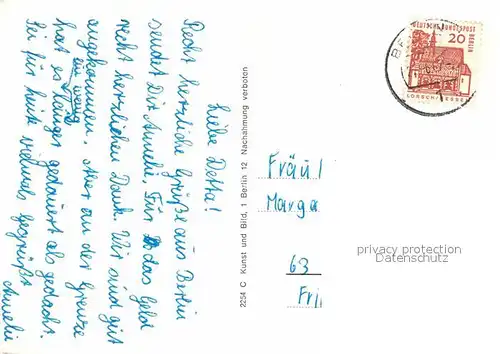 Liebe Detta!
Recht herzliche Grüße aus Berlin
sendet Dir Amelie. Für das Geld
recht herzlichen Dank. Wir sind gut
angekommen. Aber an der Grenze
hat es ein wenig länger gedauert als gedacht.
Sei für heut vielmals gegrüßt
Amelie
2254 C Kunst und Bild, 1 Berlin 12 Nachahmung verboten
DEUTSCHE BUNDESPOST
BERLIN
20
LORSCH/HESSEN
Fräul
Marga
63
Fri
privacy protection
Datenschutz